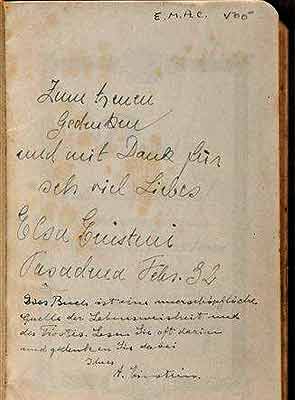 E.M.A.C.
Zum treuen
Gedenken
und mit Dank für
sehr viel Liebes
Elsa Einstein
Pasadena Febr. 32
Dies Buch ist eine unerschöpfliche
Quelle der Lebensweisheit und
des Trostes. Lesen Sie oft darin
und gedenken Sie dabei
Ihres
A. Einstein.